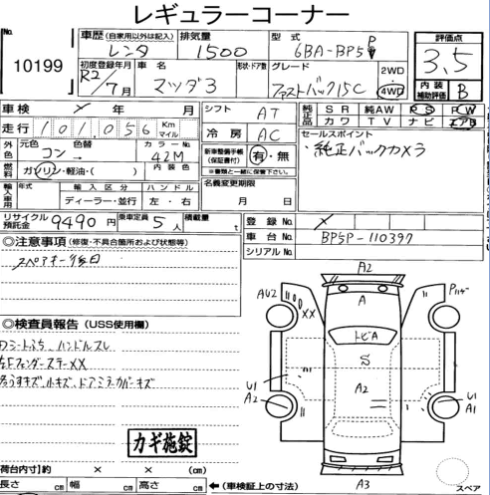 レギュラーコーナー
No.
10199
車歴 (自家用以外は記入)
レンタ
排気量
1500
型式
6BA-BP5P
評価点
3.5
初度登録年月
R2/7月
車名
マツダ3
形状・ドア数
グレード
ファストバック15C
2WD
4WD
内装
補助評価
B
車検 年 月
シフト AT
純正品 SR 純AW PS PW
カワ TV ナビ エアB
走行 101,056 Km マイル
冷房 AC
セールスポイント
・純正バックカメラ
外色 元色 色替 カラーNo.
コン 42M
新車整備手帳(保証書付) 有・無
※書類と一緒に保管下さい。
燃料 ガソリン・軽油・( ) 内装色
名義変更期限
月 日
輸入車用 年式 輸入区分 ハンドル
ディーラー・並行 左・右
リサイクル預託金 9490円 乗車定員 5人 積載量 t
登録No.
車台No. BP5P-110397
シリアルNo.
◎注意事項 (修復・不具合箇所および状態等)
スペアキー後日
◎検査員報告 (USS使用欄)
ハンドルスレ
左Fフェンダーステー××
小キズ、ドアミラーカバーキズ
カギ施錠
A2
AU2
××
A
トビA
S
A2
U1
A2
U1
A1
A3
スペア
荷台内寸)約 × × (cm)
長さ cm 幅 cm 高さ cm
←(車検証上の寸法)